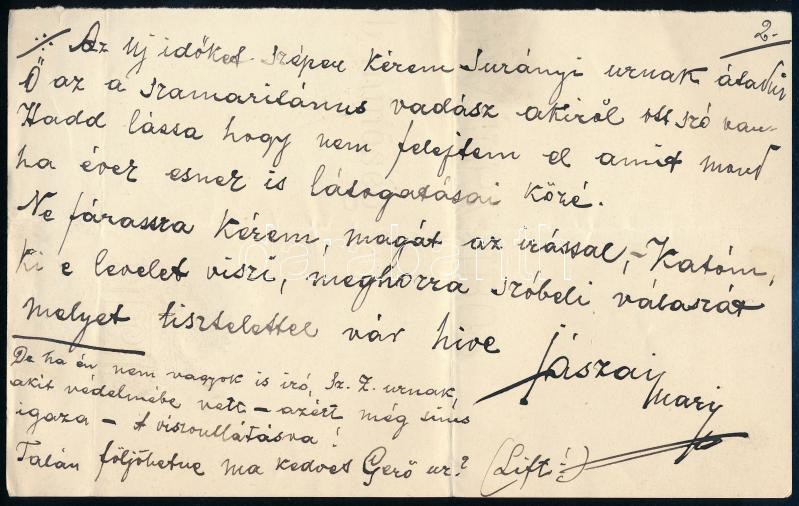 2.
·/· Az Uj időket szépen kérem Surányi urnak átadni
Ő az a szamaritánus vadász akiről ott szó van.
Hadd lássa hogy nem felejtem el amit mond
ha évek esnek is látogatásai közé.
Ne fárassza kérem, magát az irással, - Katóm,
ki e levelet viszi, meghozza szóbeli válaszát
melyet tisztelettel vár hive
Jászai
Mari
De ha én nem vagyok is iró, Sz. Z. urnak,
akit védelmébe vett - azért még sincs
igaza - A viszontlátásra!
Talán följöhetne ma kedves Gerő ur? (Lift!)
darabanth